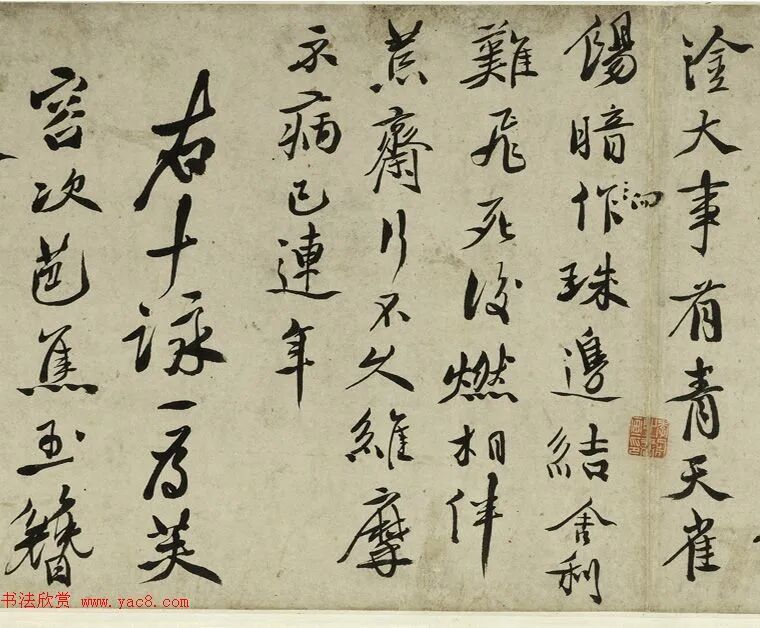 塗大事有青天雀
餳暗作珠邊結舍利
難飛死後燃相伴
荒齋行不久維摩
示病已連年
右十詠一為芙
容次芭蕉玉簪
书法欣赏 www.yac8.com